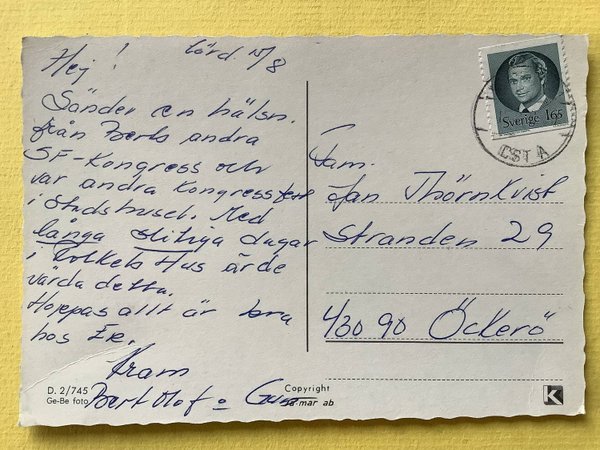 Hej! Lörd. 15/8
Sänder en hälsn.
från Berts andra
SF-Kongress och
vår andra Kongressfest
i Stadshuset. Med
långa slitiga dagar
i Folkets Hus är de
värda detta.
Hoppas allt är bra
hos Er.
Kram
Bert Olof o Gun
D. 2/745
Ge-Be foto
Copyright
sa-mar ab
Fam.
Jan Thörnkvist
Stranden 29
430 90 Öckerö
Sverige 165
CST A
K